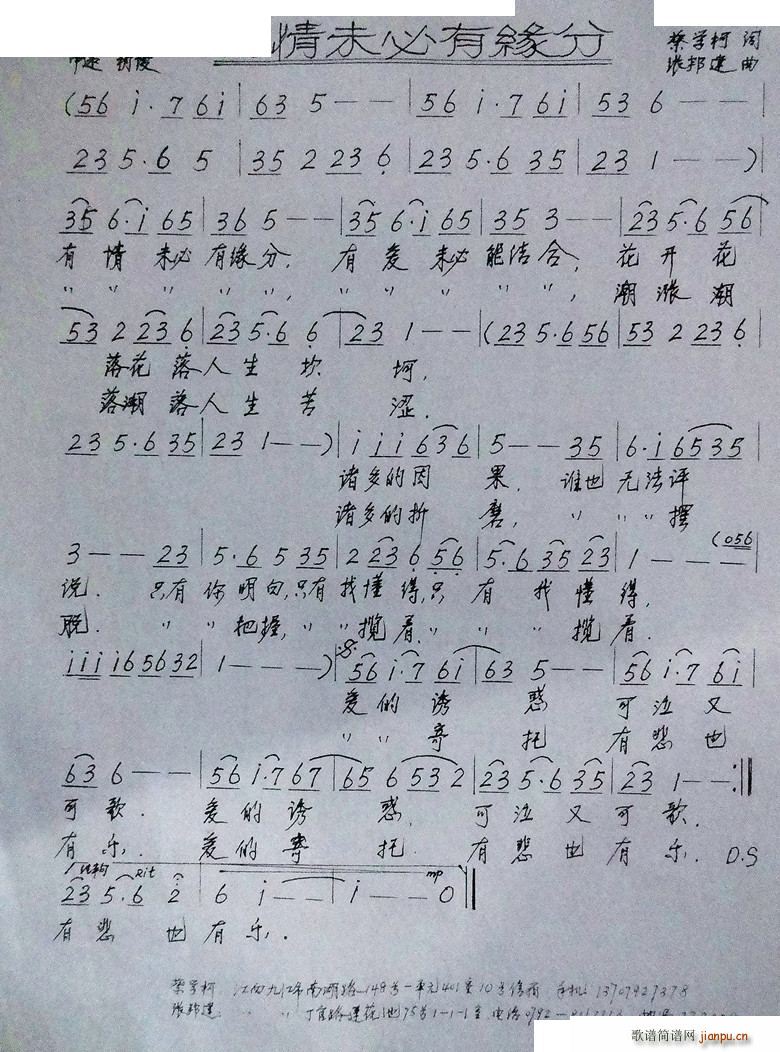 情未必有緣分
蔡学柯 词
张邦建 曲
(56 i·7 6i | 63 5 - - | 56 i·7 6i | 53 6 - - |
23 5·6 5 | 35 2 23 6 | 23 5·6 35 | 23 1 - - )
35 6·i 65 | 36 5 - - | 35 6·i 65 | 35 3 - - | 23 5·6 56 |
有情未必有缘分, 有爱未必能结合, 花开花
" " " " ", " " " " ", 潮涨潮
53 2 23 6 | 23 5·6 6 | 23 1 - - | (23 5·6 56 | 53 2 23 6 |
落花落人生坎坷,
落潮落人生苦涩.
23 5·6 35 | 23 1 - - ) | i i i 636 | 5 - - 35 | 6·i 6535 |
诸多的因果, 谁也无法评
诸多的折磨, " " " 摆
(056
3 - - 23 | 5·6 5 35 | 2 23 6 56 | 5·6 35 23 | 1 - - - |
说. 只有你明白,只有我懂得,只有我懂得,
脱. " " 把握, " " 揽着. " " " 揽着.
iiii 6 5632 | 1 - - ) | 56 i·7 6i | 63 5 - - | 56 i·7 6i |
爱的诱惑 可泣又
" " 寄托 有悲也
63 6 - - | 56 i·7 67 | 65 6 532 | 23 5·6 35 | 23 1 - - :||
可歌. 爱的诱惑, 可泣又可歌.
有乐. 爱的寄托. 有悲也有乐. D.S
结构 Rit mp
23 5·6 2 | 6 i - - | i - - 0 ||
有悲也有乐.
蔡学柯 江西九江市南湖路148号一单元401室
张邦建
歌谱简谱网
jianpu.cn